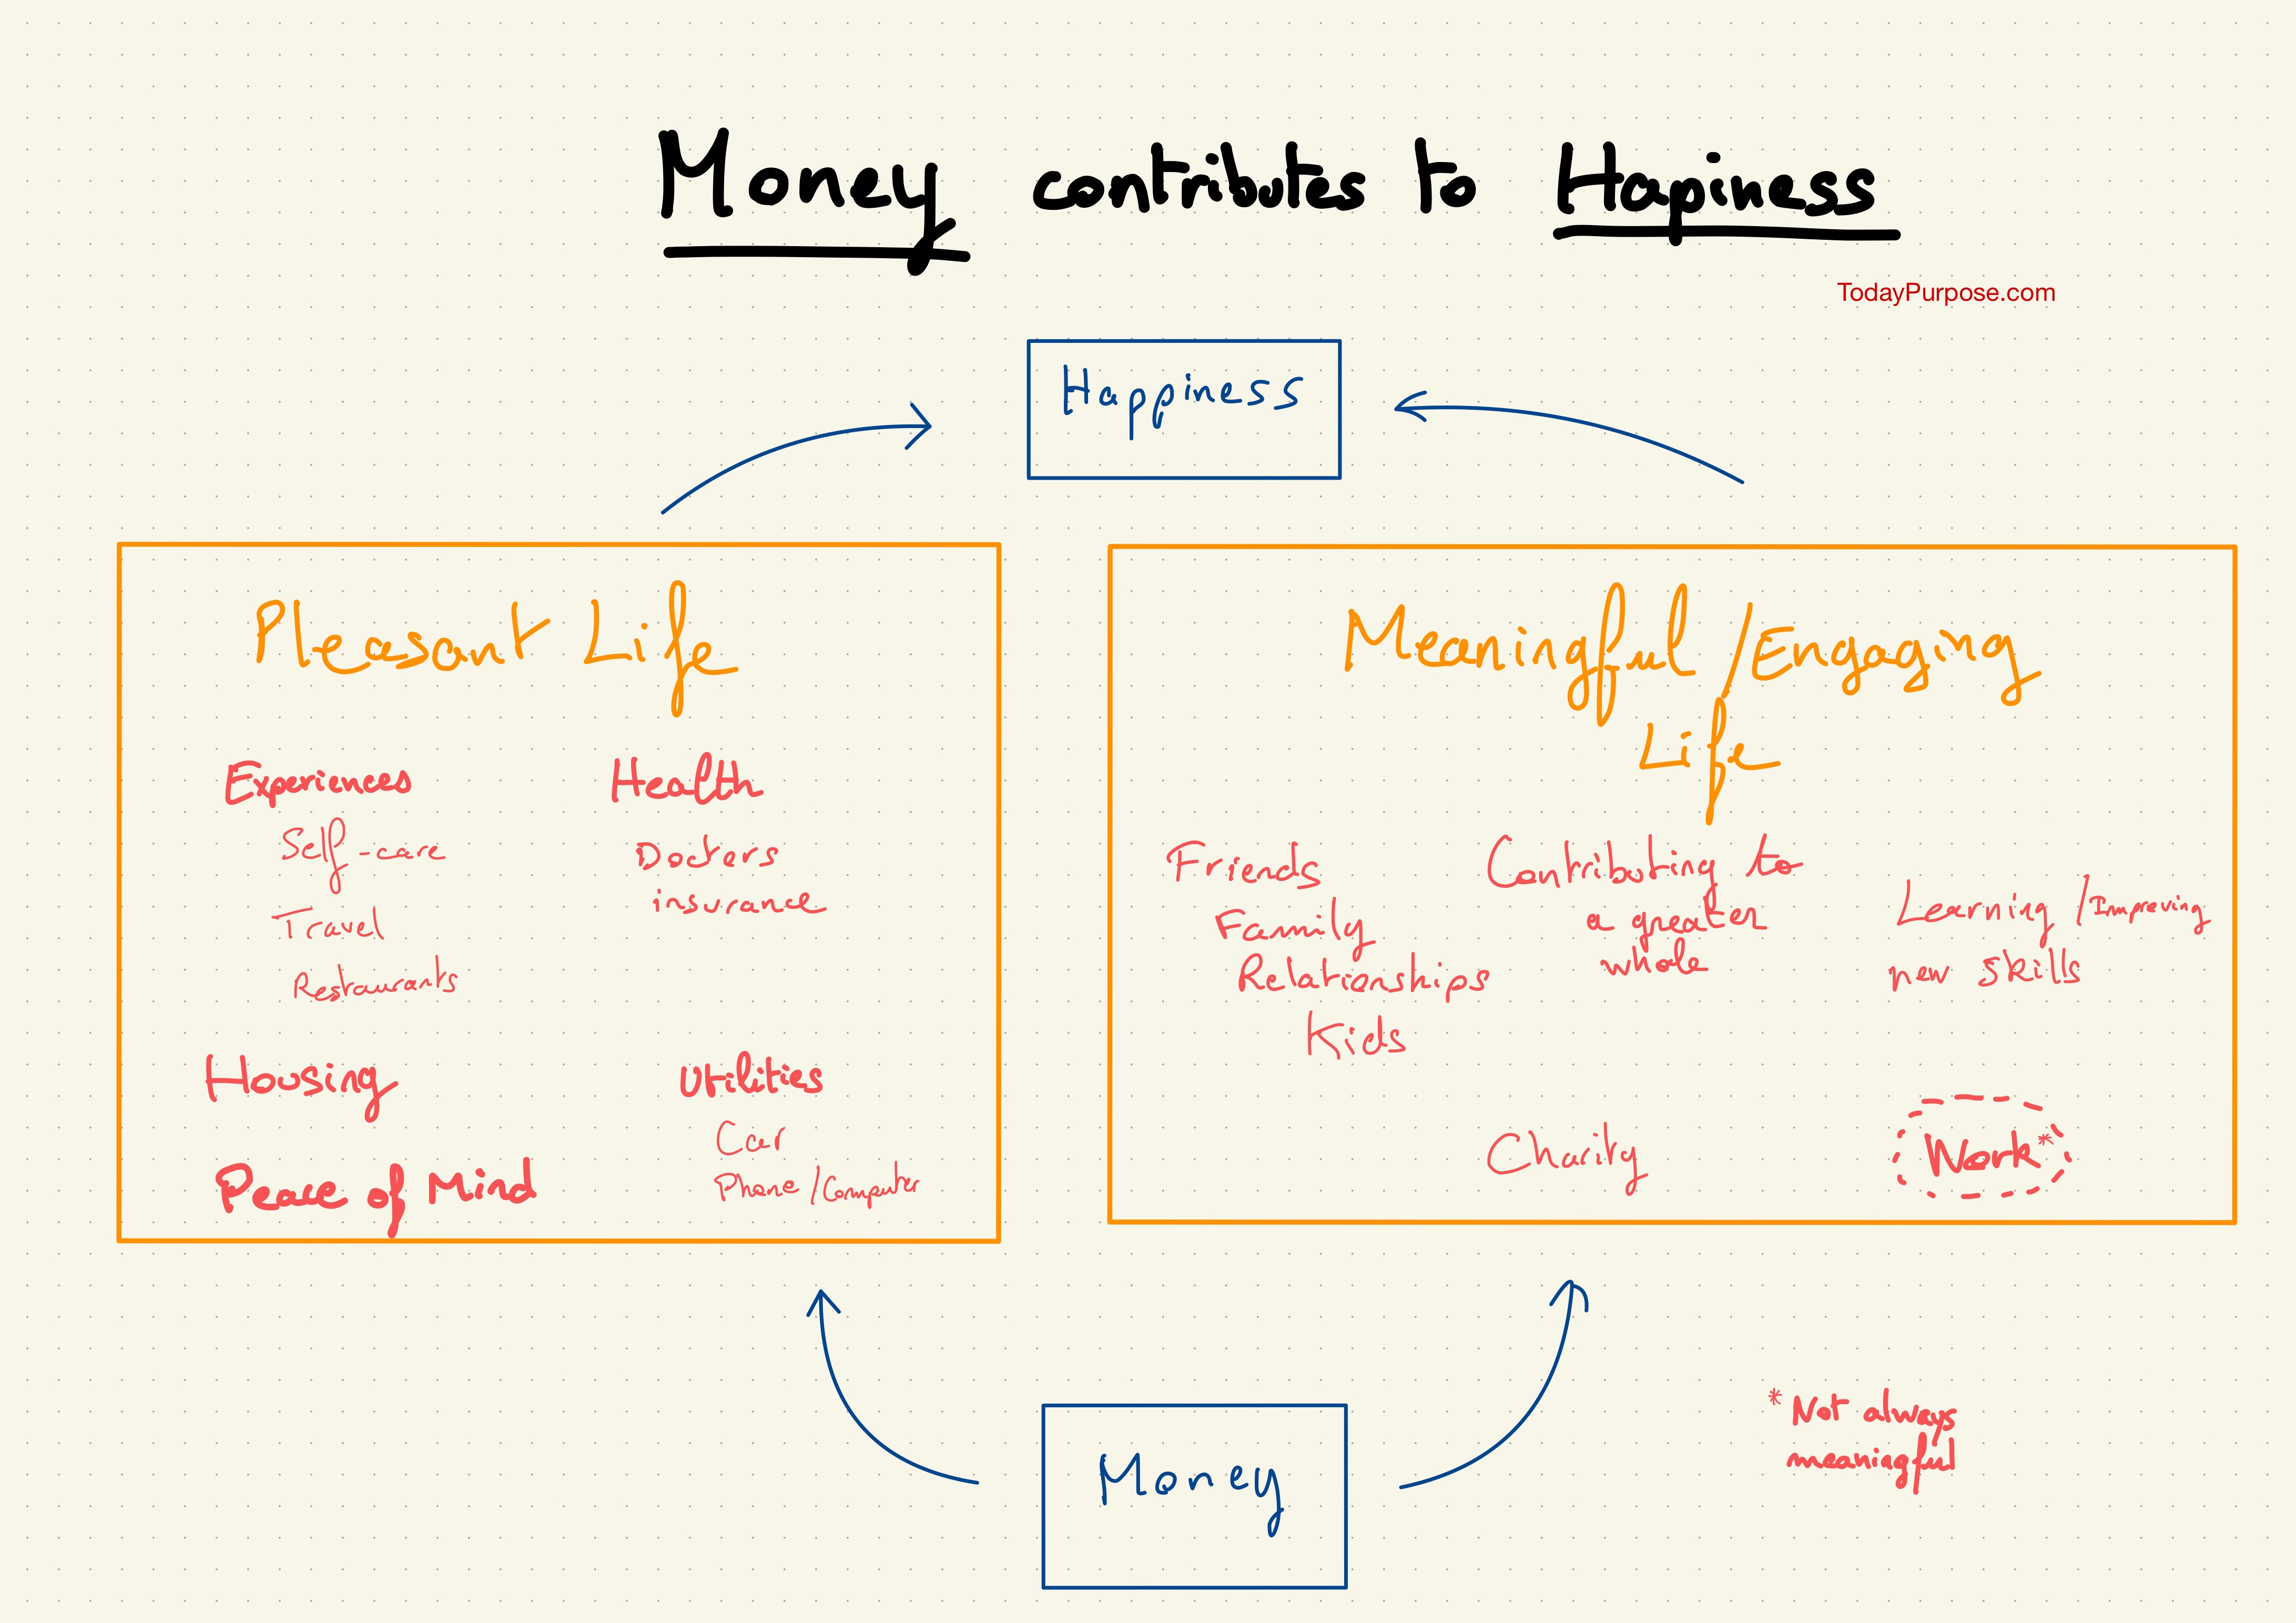 Money contributes to Hapiness
TodayPurpose.com
Happiness
Pleasant Life
Experiences
Self-care
Travel
Restaurants
Health
Doctors
insurance
Housing
Peace of Mind
Utilities
Car
Phone/Computer
Meaningful/Engaging
Life
Friends
Family
Relationships
Kids
Contributing to
a greater
whole
Learning/Improving
new skills
Charity
Work*
Money
*Not always
meaningful